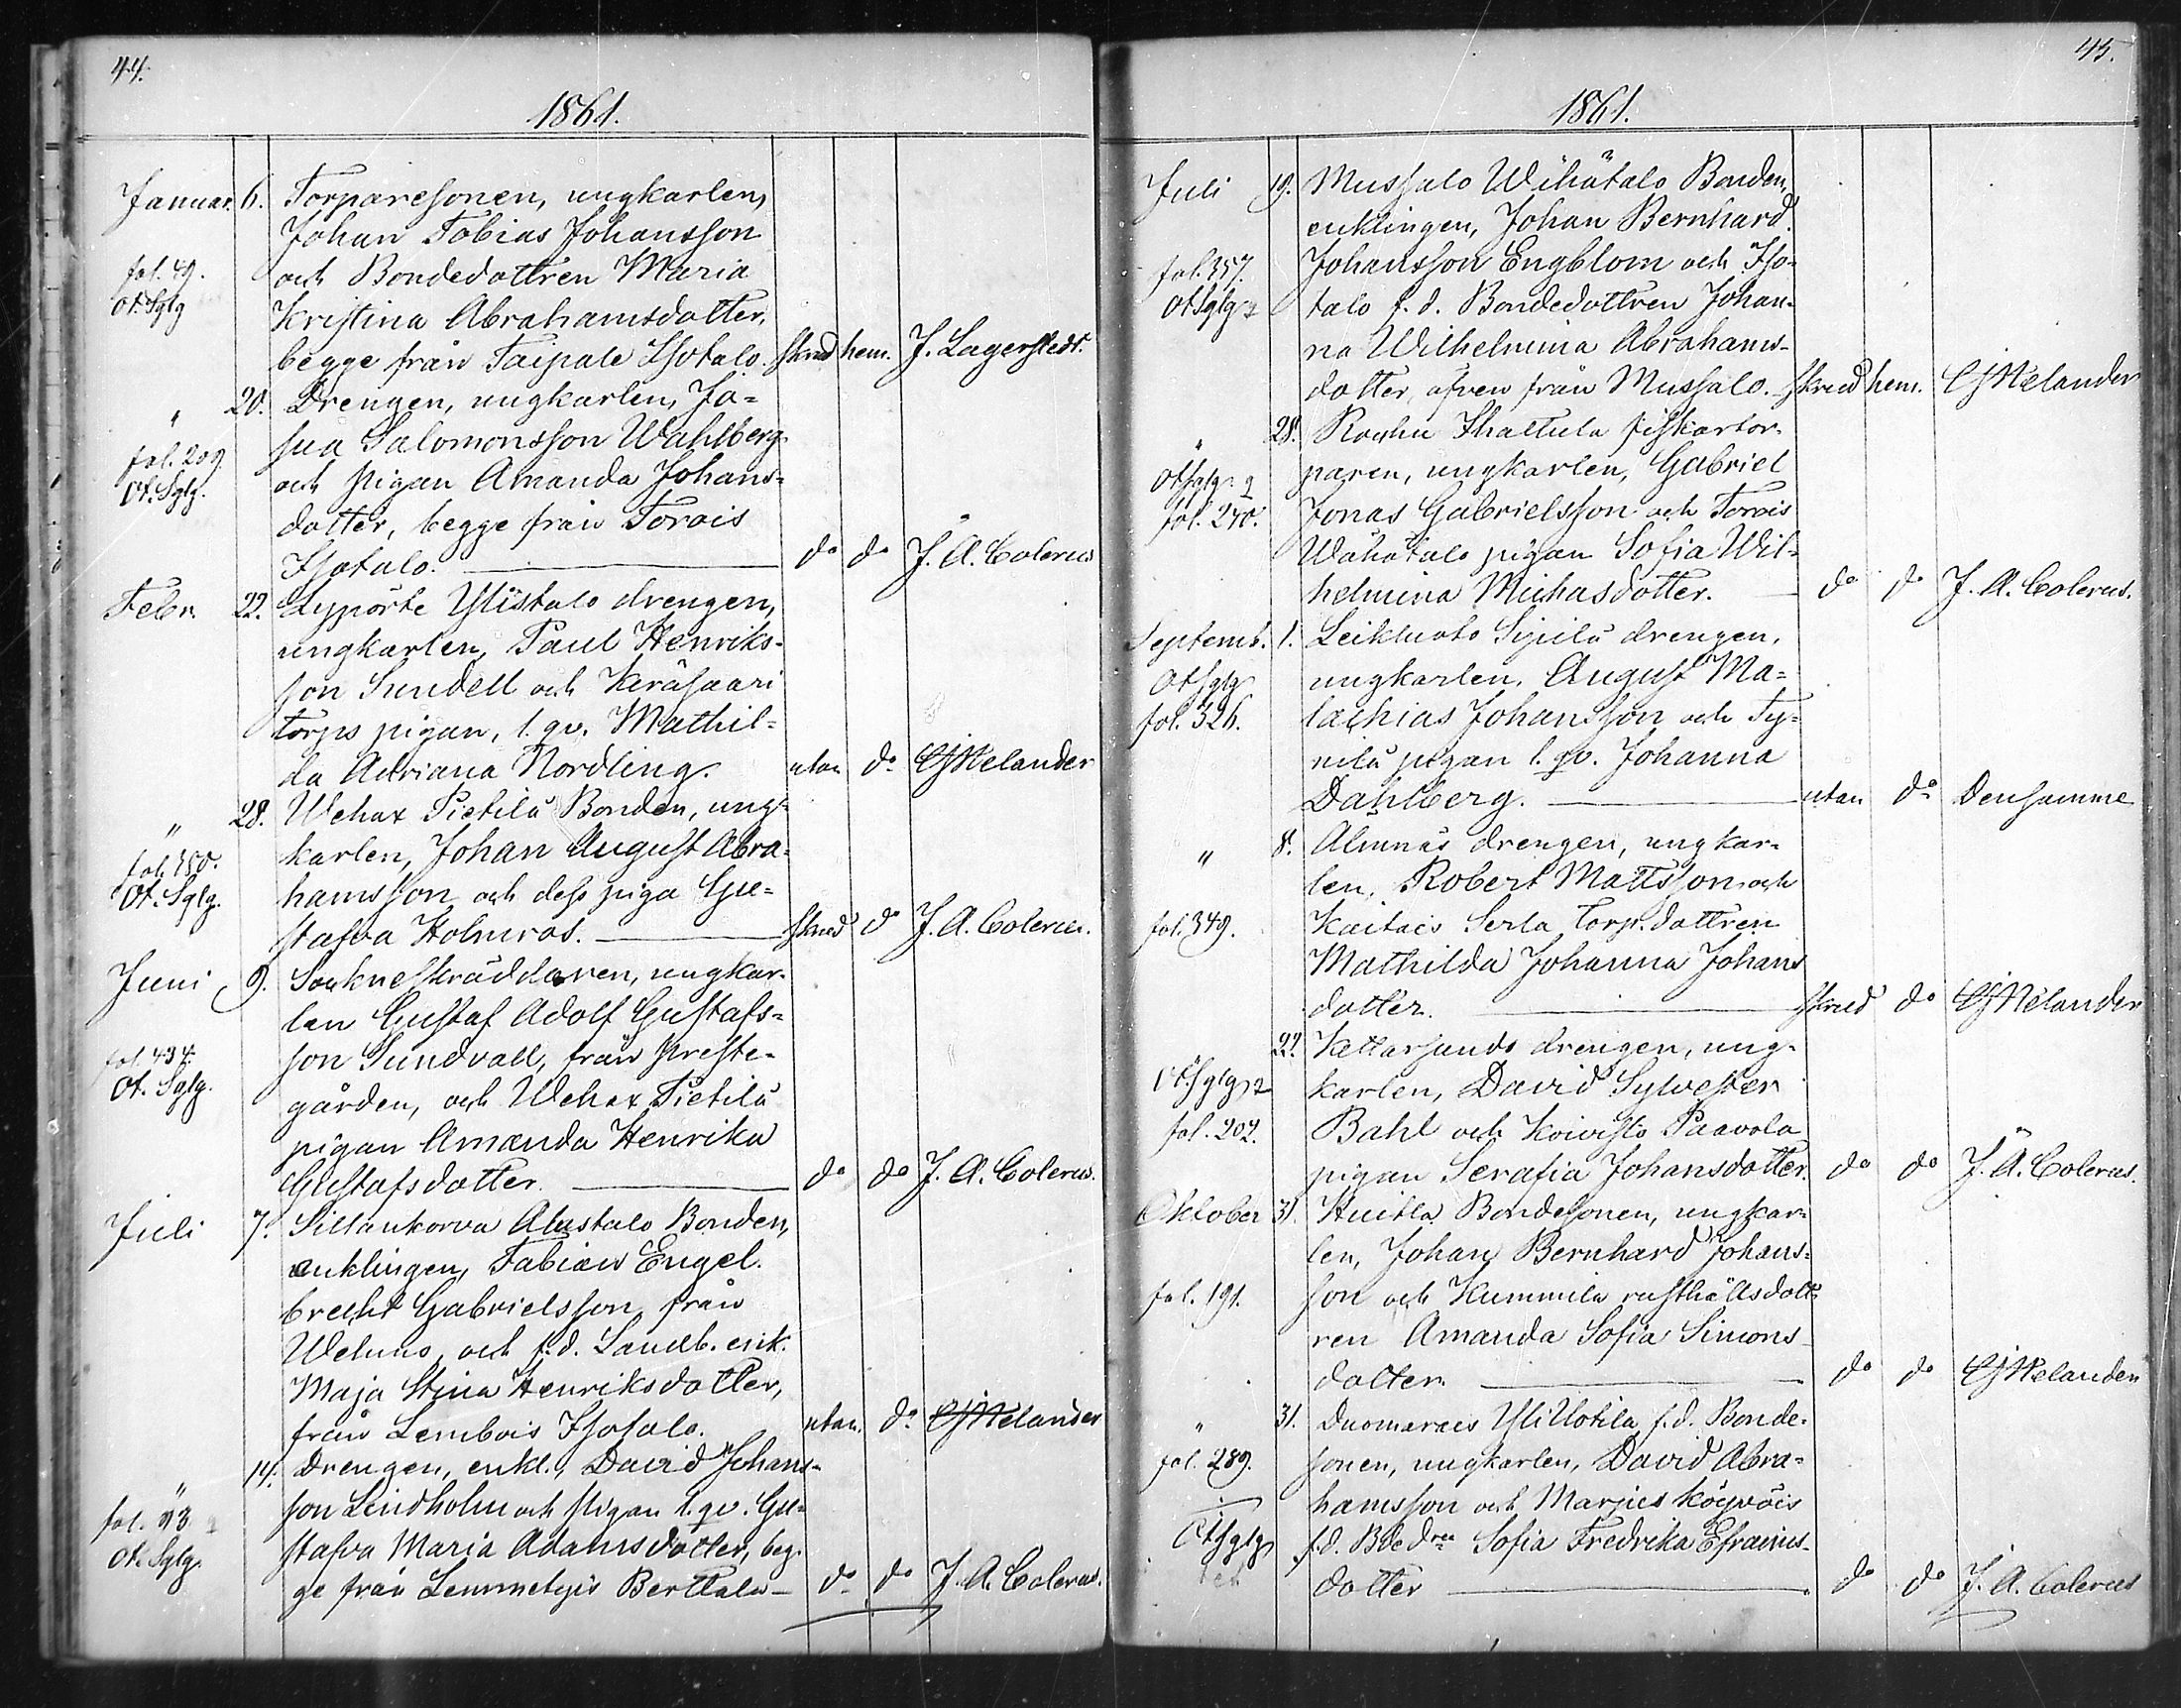 44.
1861.
Januar. 6. Torparesonen, ungkarlen,
Johan Tobias Johansson
fol. 49. och Bondedottren Maria
Ot. Sglg Kristina Abrahamsdotter,
begge från Taipale Isotalo. skrud hem. J. Lagerstedt.
" 20. Drengen, ungkarlen, Jo-
sua Salomonsson Wahlberg
fol. 209 och pigan Amanda Johans-
Ot. Sglg. dotter, begge från Torois
Isotalo. do do J. A. Colerus
Febr. 22. Lypörte Ylistalo drengen,
ungkarlen, Paul Henriks-
son Sundell och Keräsaari
torps pigan, l. qv. Mathil-
da Adriana Nordling. utan do CJMelander
" 28. Wehax Pietilä Bonden, ung-
fol. 380. karlen, Johan August Abra-
Ot. Sglg. hamsson och dess piga Gu-
stafva Holmros. skrud do J. A. Colerus.
Juni 9. Sockneskräddaren, ungkar-
len Gustaf Adolf Gustafs-
fol. 434. son Sundvall, från Preste-
Ot. Sglg. gården, och Wehax Pietilä
pigan Amanda Henrika
Gustafsdotter. do do J. A. Colerus.
Juli 7. Sillankorva Alastalo Bonden,
enklingen, Fabian Engel-
brecht Gabrielsson från
och f.d. Landb. enk.
Maja Stina Henriksdotter,
från Lembois Isotalo. utan. do CJMelander
" 14. Drengen, enkl., David Johans-
fol. 93 son Lindholm och Pigan l. qv. Gu-
Ot. Sglg. stafva Maria Adamsdotter, beg-
ge från Lemmetyis Berttala do do J. A. Colerus.
45.
1861.
Juli 19. Mussalo Wähätalo Bonden,
enklingen, Johan Bernhard
fol. 357. Johansson Engblom och Iso-
Ot Sglg talo f. d. Bondedottren Johan-
na Wilhelmina Abrahams-
dotter, äfven från Mussalo. skrud hem. CJMelander
" 28. Rauhu Ihattula fiskartor-
paren, ungkarlen, Gabriel
fol. 240. Jonas Gabrielsson och Torois
Wähätalo pigan Sofia Wil-
helmina Michasdotter. do do J. A. Colerus.
Septemb. 1. Leikluoto Sipilä drengen,
Ot Sglg ungkarlen, August Ma-
fol. 326. lachias Johansson och Ty-
nilä pigan l. qv. Johanna
Dahlberg. utan do Densamme
" 8. Almnäs drengen, ungkar-
len, Robert Mattsson och
fol. 349. Kaitais Serla Torp.dottren
Mathilda Johanna Johans
dotter. skrud do CJMelander
22. Kettarsunds drengen, ung-
Ot. Sglg karlen, David Sylvester
fol. 202. Bahl och Koivisto Paavola
pigan Serafia Johansdotter. do do J. A. Colerus.
Oktober 31. Huitla Bondesonen, ungkar-
len, Johan Bernhard Johans-
fol. 191. son och Kummila rusthållsdott-
ren Amanda Sofia Simons-
dotter. do do CJMelander
" 31. Duomarais Yli Uotila f. d. Bonde-
fol. 289. sonen, ungkarlen, David Abra-
hamsson och Marjus Köyvöis
Ot Sglg f. d. Bdedren Sofia Fredrika Efraims-
dotter do do J. A. Colerus